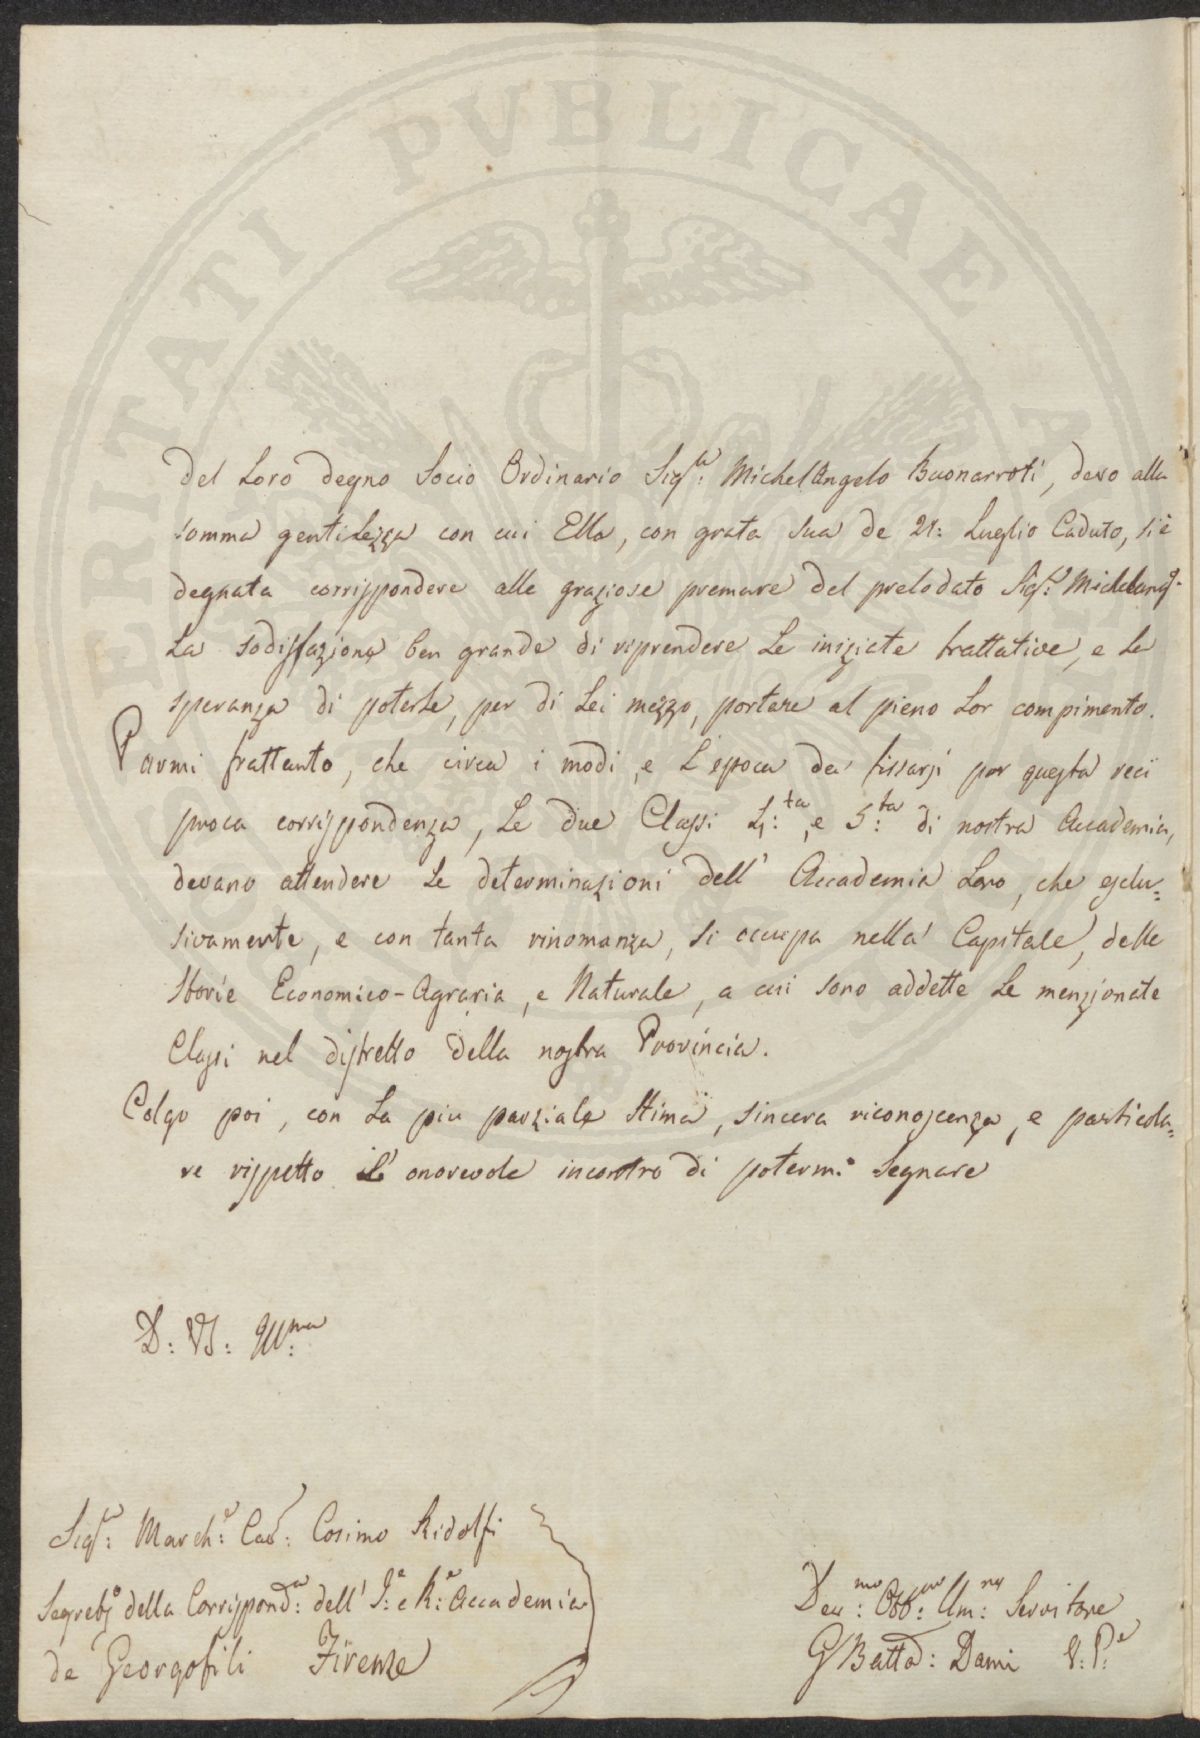 PROSPERITATI PUBLICAE A
del Loro degno Socio Ordinario Sig.r MichelAngelo Buonarroti, devo alla
somma gentilezza con cui Ella, con grata sua de 21: Luglio Caduto, si è
degnata corrispondere alle graziose premure del prelodato Sig.r Michelang.o
La sodisfazione ben grande di riprendere Le iniziate trattative, e La
speranza di poterle, per di Lei mezzo, portare al pieno Lor compimento.
Parmi frattanto, che circa i modi, e L'epoca da fissarsi per questa reci
proca corrispondenza, Le due Classi 4:ta, e 5:ta di nostra Accademia,
devano attendere Le determinazioni dell' Accademia Loro, che esclu=
sivamente, e con tanta rinomanza, si occupa nella Capitale, delle
Storie Economico-Agraria, e Naturale, a cui sono addette Le menzionate
Classi nel distretto della nostra Provincia.
Colgo poi, con La piu parziale stima, sincera riconoscenza, e particola=
re rispetto L' onorevole incontro di potermi segnare
D: VS: Ill:ma
Sig:r March:e Cav: Cosimo Ridolfi
Segret:o della Corrispond:a dell' I:e e R:e Accademia
de Georgofili Firenze
Dev:mo Obb:mo Um:mo Servitore
G Batta: Dami V: P:e